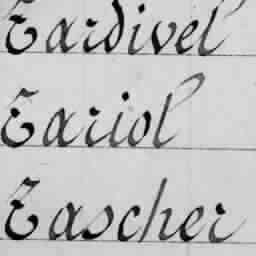 Tardivel
Tariol
Tascher